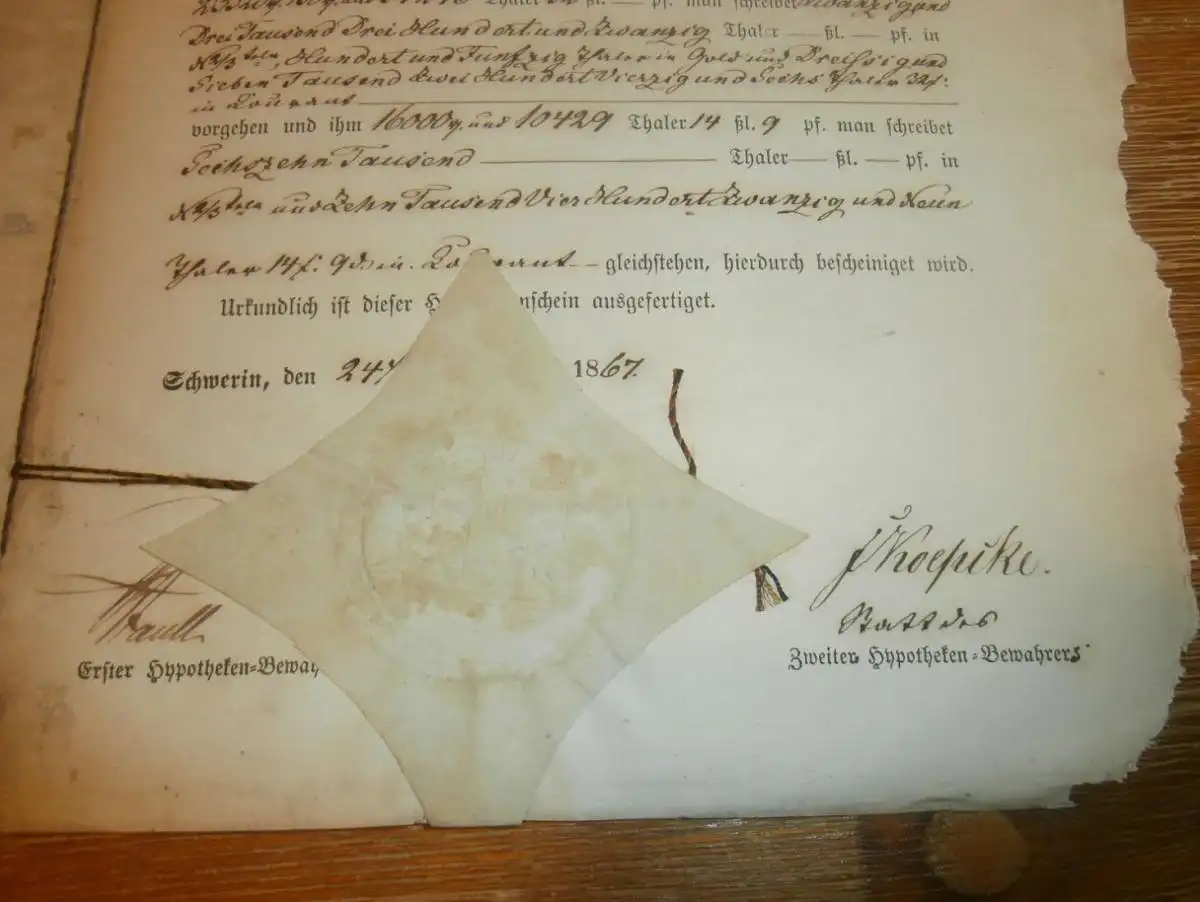 Thaler ßl. — pf. man schreibet Zwanzig und
Drei Tausend Drei Hundert und Zwanzig Thaler — ßl. — pf. in
N 2/3 teln, Hundert und Funfzig Thaler in Gold und Dreissig und
Sieben Tausend Zwei Hundert Vierzig und Sechs Thaler
in Courant
vorgehen und ihm 16000 und 10429 Thaler 14 ßl. 9 pf. man schreibet
Sechszehn Tausend — Thaler — ßl. — pf. in
N 2/3 teln und Zehn Tausend Vier Hundert Zwanzig und Neun
Thaler 14 ß. 9 d. in Courant — gleichstehen, hierdurch bescheiniget wird.
Urkundlich ist dieser H nschein ausgefertiget.
Schwerin, den 24 1867.
Koepcke.
Statt des
Erster Hypotheken-Bewah
Zweiter Hypotheken-Bewahrers